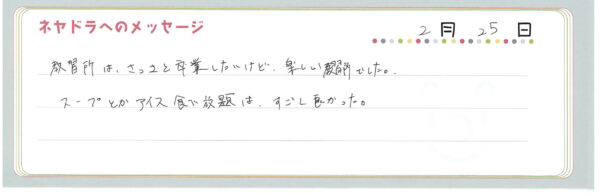 ネヤドラへのメッセージ
2月 25日
教習所は、さっさと卒業したいけど、楽しい教習所でした。
スープとかアイス食べ放題は、すごし良かった。